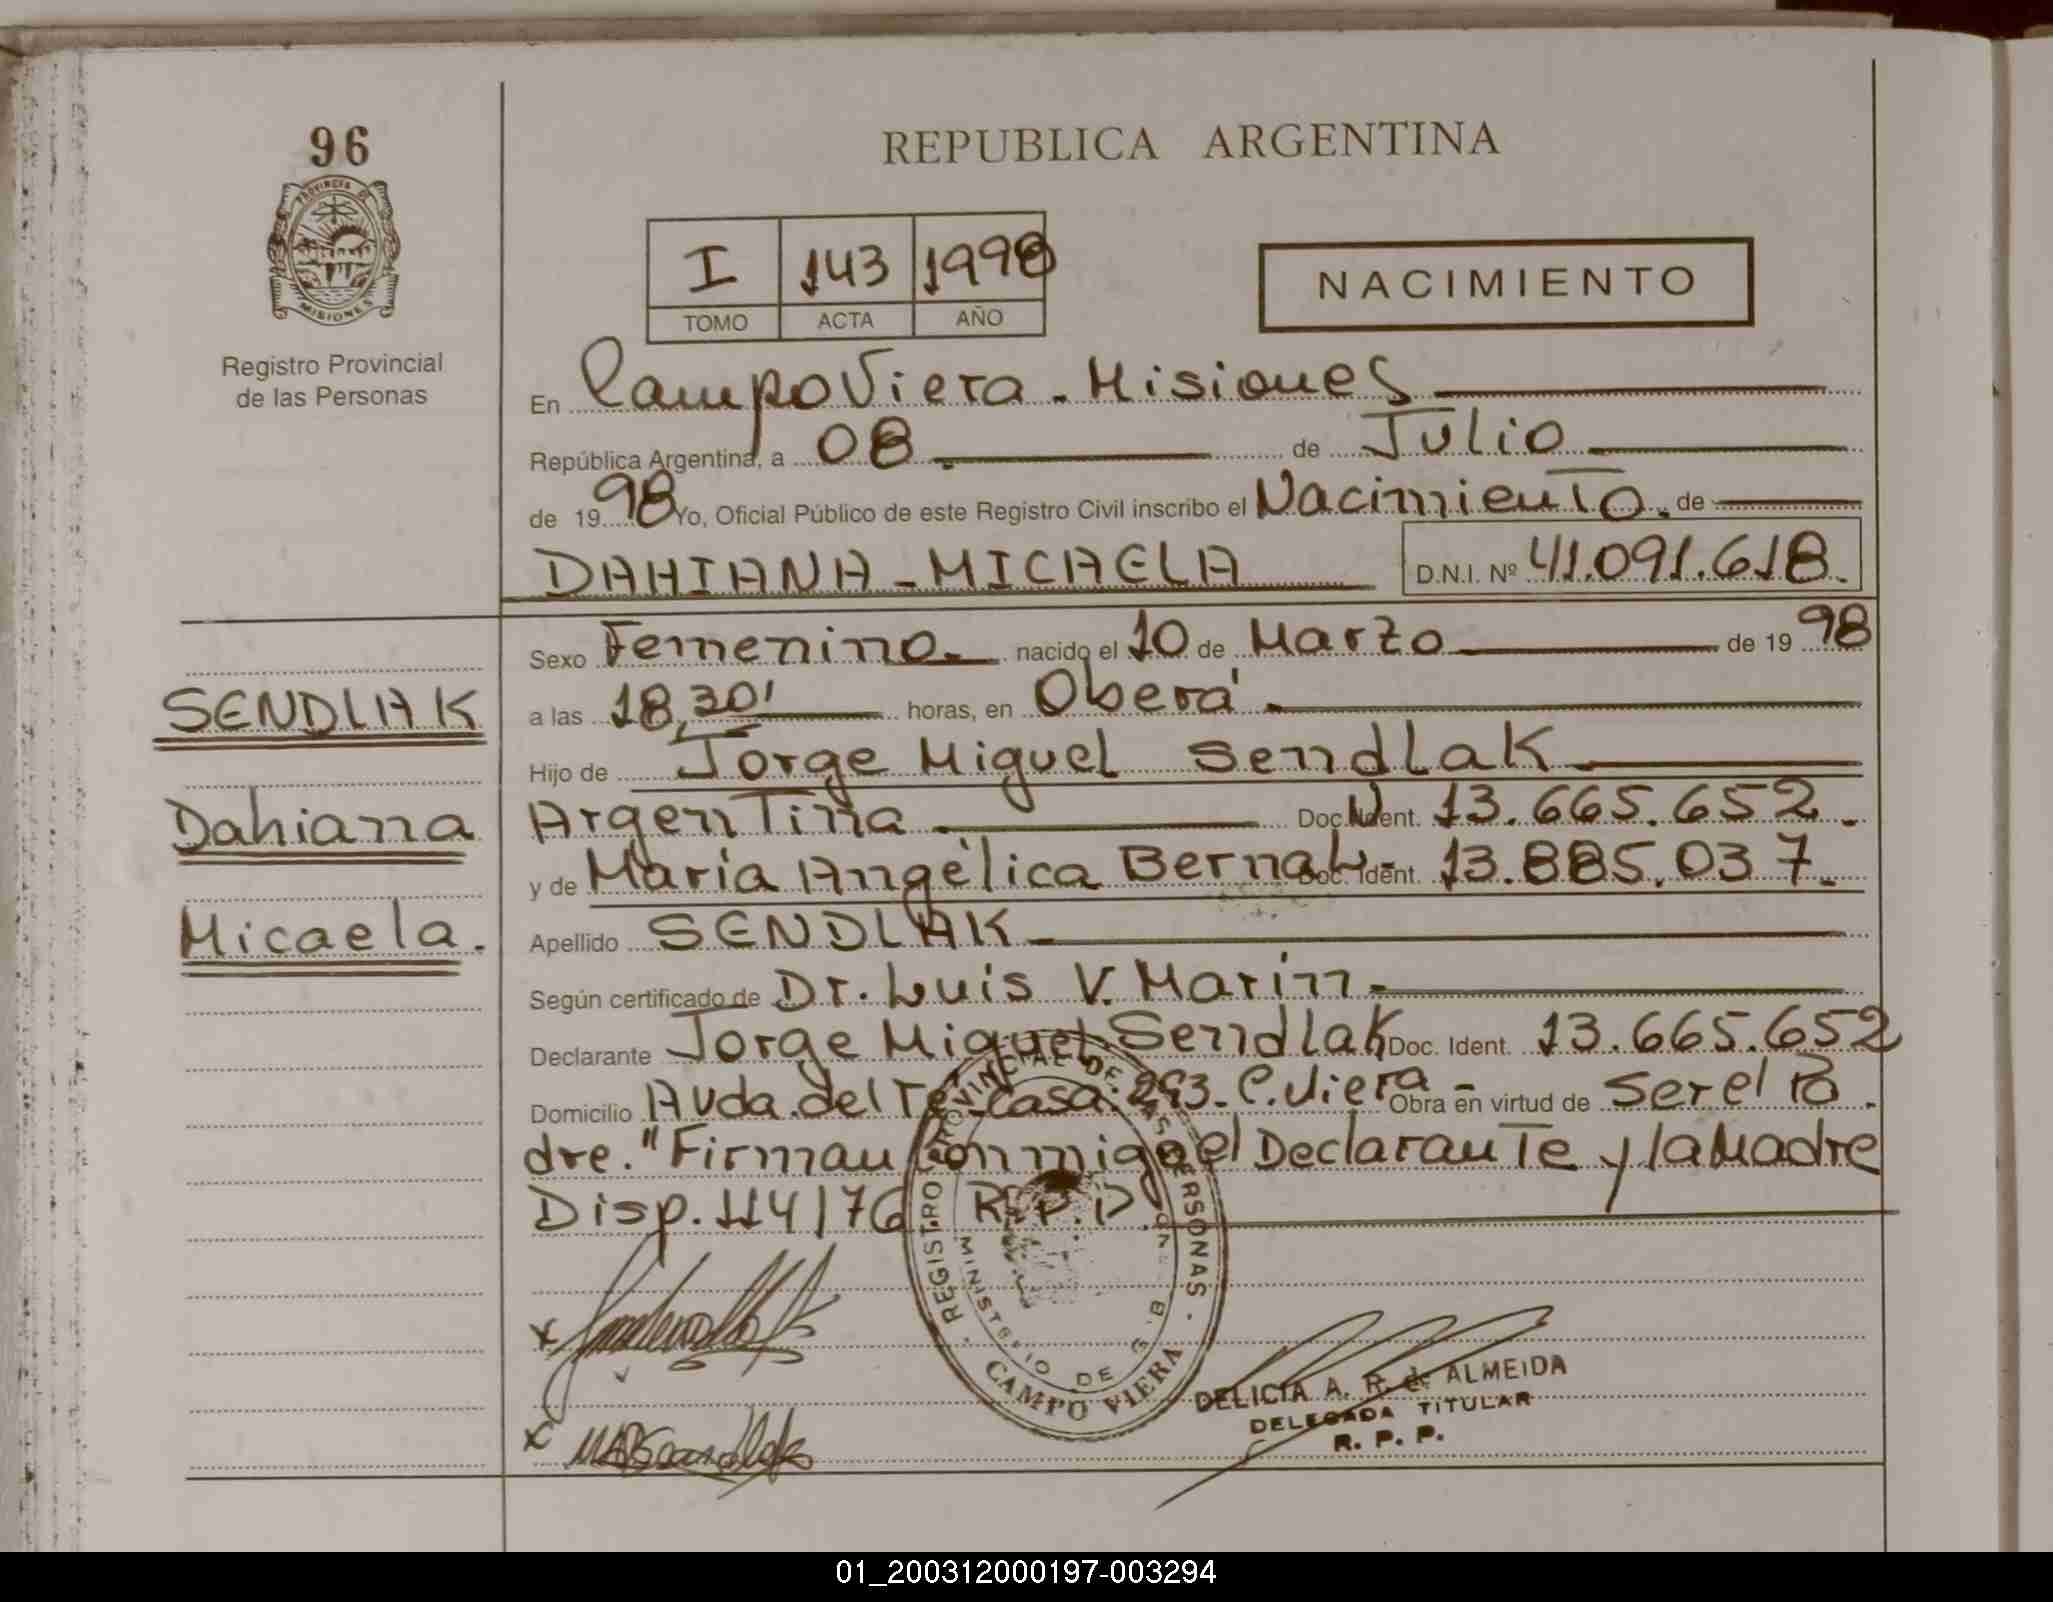 96
PROVINCIA DE
MISIONES
Registro Provincial
de las Personas
REPUBLICA ARGENTINA
I 143 1998
TOMO ACTA AÑO
NACIMIENTO
En Campo Viera - Misiones
República Argentina, a 08 de Julio
de 1998 Yo, Oficial Público de este Registro Civil inscribo el Nacimiento. de
DAHIANA - MICAELA D.N.I. Nº 41.091.618.
Sexo Femenino. nacido el 10 de Marzo de 1998
a las 18,30' horas, en Oberá
Hijo de Jorge Miguel Sendlak
Argentina Doc. Ident. 13.665.652.
y de María Angélica Bernal - Doc. Ident. 13.885.037.
Apellido SENDLAK
Según certificado de Dr. Luis V. Marin
Declarante Jorge Miguel Sendlak Doc. Ident. 13.665.652
Domicilio Avda. del Té - casa: 293 - C. Viera - Obra en virtud de Ser el Pa
dre. "Firman conmigo el Declarante y la Madre
Disp. 114/76 R.P.P.
SENDLAK
Dahiana
Micaela.
REGISTRO PROVINCIAL DE LAS PERSONAS
MINISTERIO DE G B
CAMPO VIERA
x
x
DELICIA A. R. de ALMEIDA
DELEGADA TITULAR
R. P. P.
01_200312000197-003294